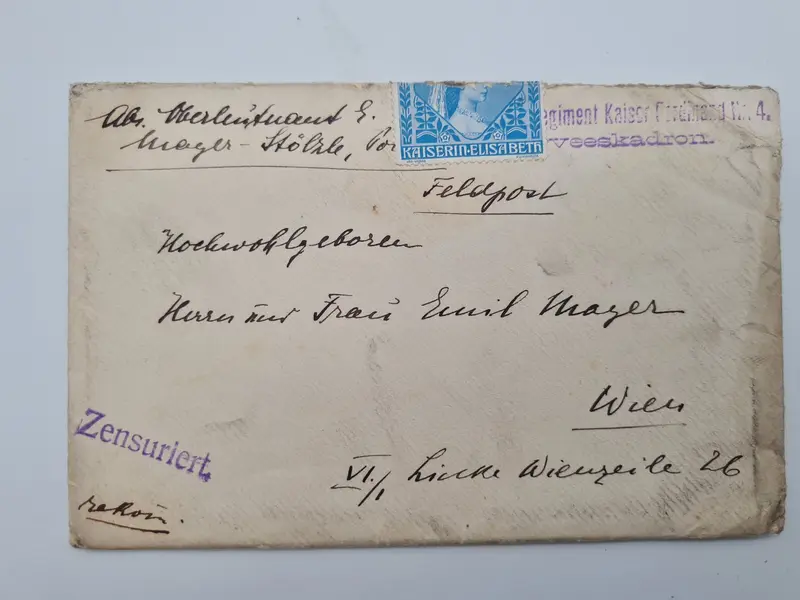 Abs. Oberleutnant E.
Mayer-Stölzle,
KAISERIN·ELISABETH
egiment Kaiser Ferdinand Nr. 4.
veeskadron.
Feldpost
Hochwohlgeboren
Herrn und Frau Emil Mayer
Wien
VI./1 Linke Wienzeile 26
Zensuriert.
rekom.